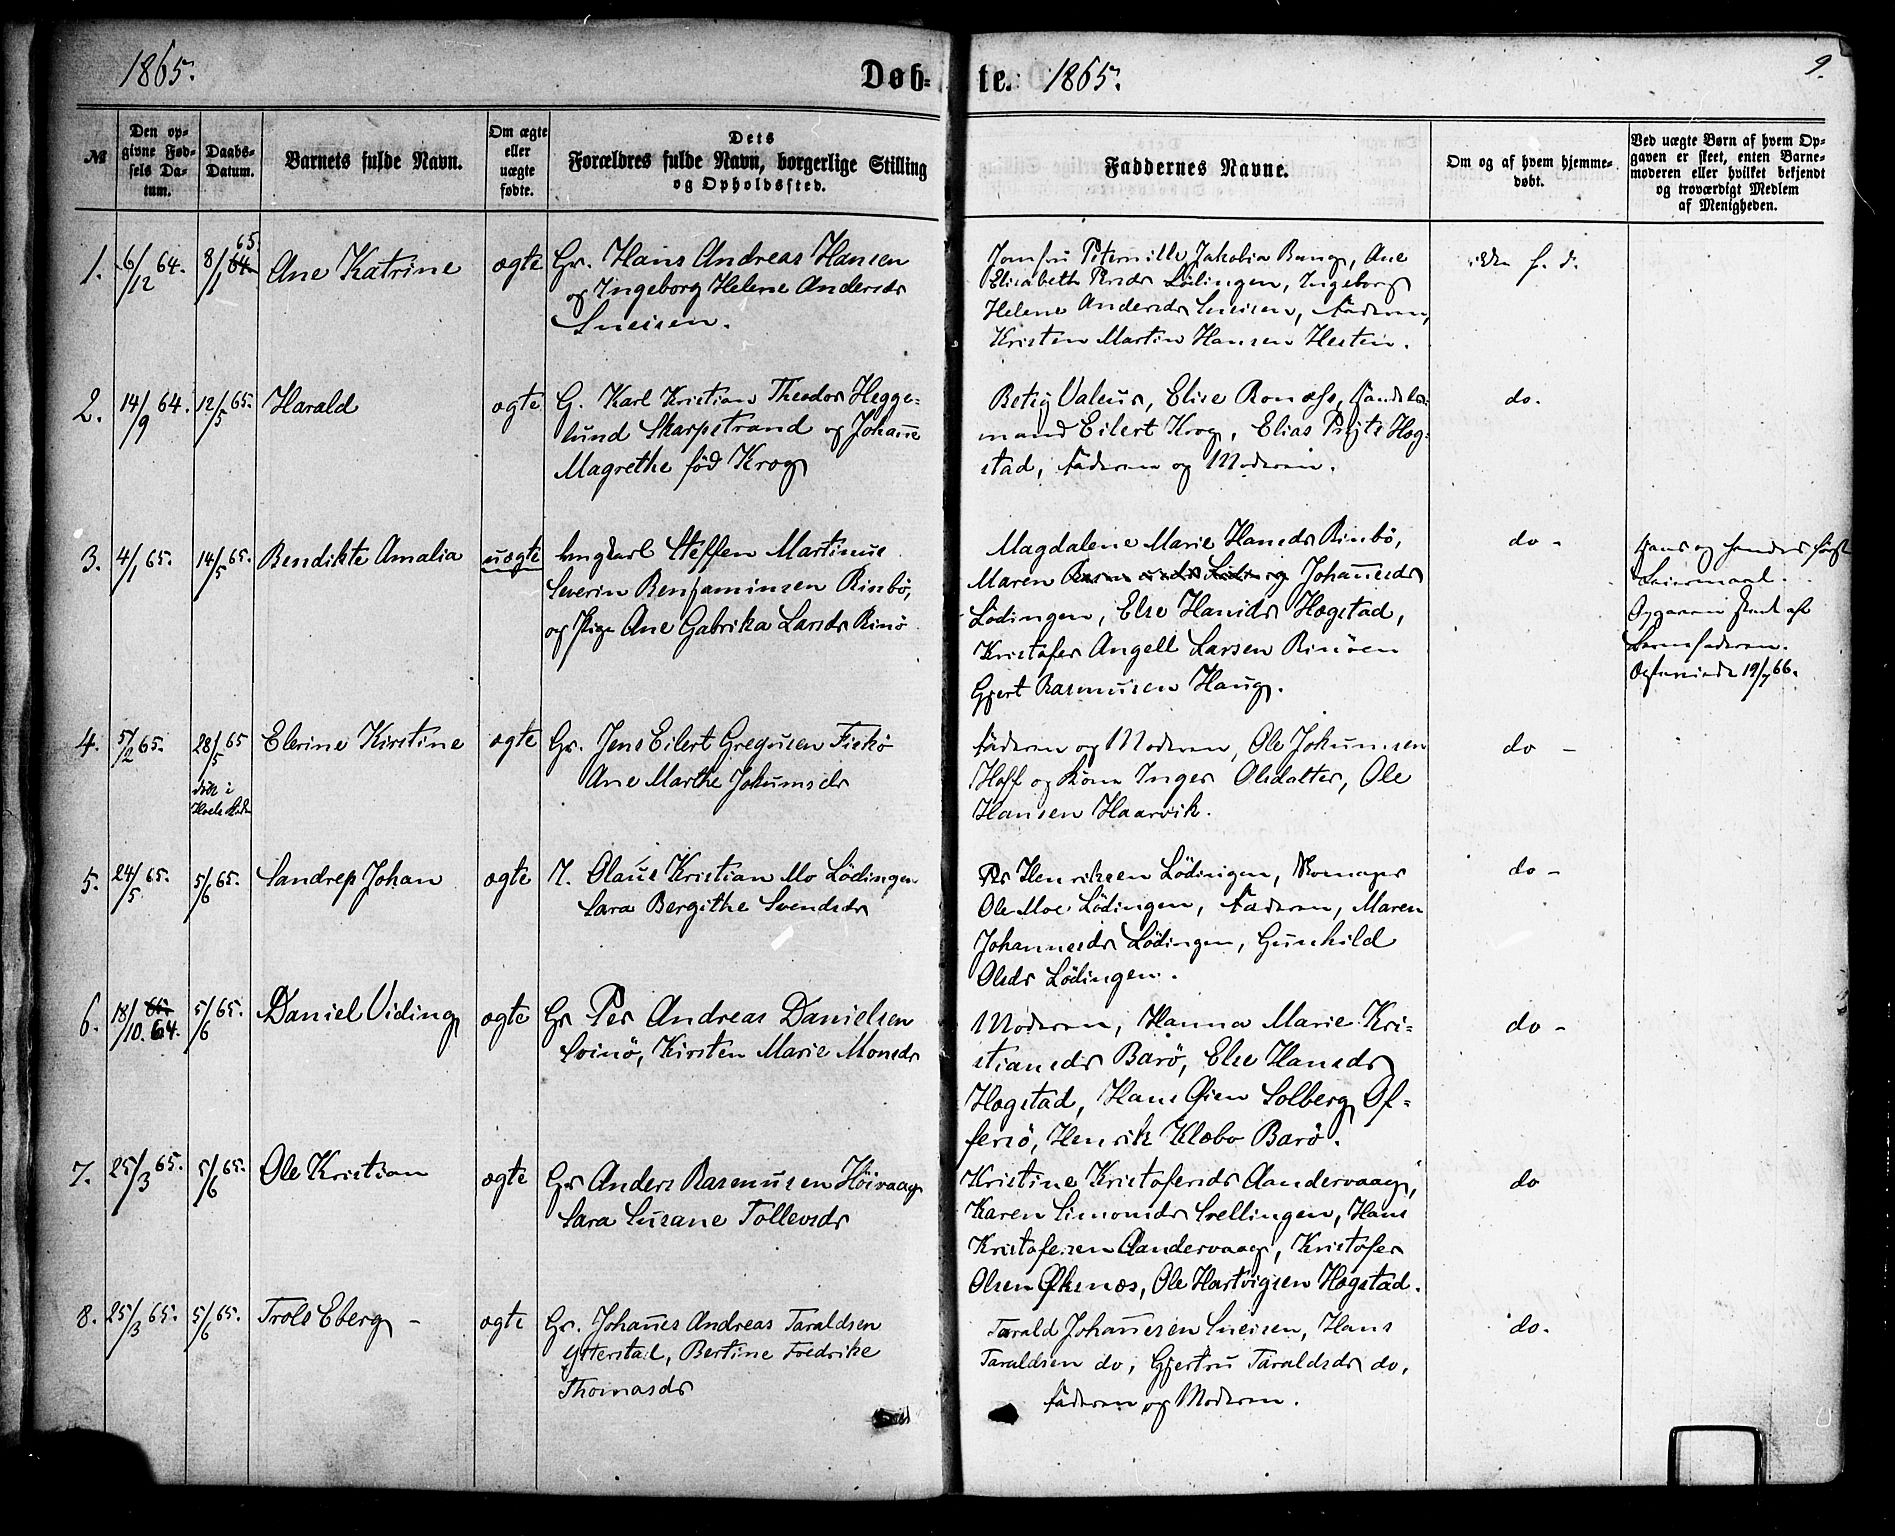 1865.
Døb-
te.
1865.
9.
№
Den op-
givne Fød-
sels Da-
tum.
Daabs-
Datum.
Barnets fulde Navn.
Om ægte
eller
uægte
fødte.
Dets
Forældres fulde Navn, borgerlige Stilling
og Opholdssted.
Faddernes Navne.
Om og af hvem hjemme-
døbt.
Ved uægte Børn af hvem Op-
gaven er skeet, enten Barne-
moderen eller hvilket bekjendt
og troværdigt Medlem
af Menigheden.
1. 6/12 64. 8/1 64 65. Ane Katrine ægte Gr. Hans Andreas Hansen
og Ingeborg Helene Andersdr
Sneisen.
Jomfru Peternille Jakobia Bang, Ane
Elisabeth Persdr Lödingen, Ingeborg
Helene Andersdr Sneisen, Faderen,
Kristen Martin Hansen Hesten.
ikke h. d.
2. 14/9 64. 12/5 65. Harald ægte G. Karl Kristian Theodor Hegge-
lund Skarpstrand og Johanne
Magrethe föd Krog
Betsy Valeur, Elise Ronæss, Handels-
mand Eilert Krog, Elias Hog-
stad, Faderen og Moderen.
do.
3. 4/1 65. 14/5 65. Bendikte Amalia uægte Ungkarl Steffen Martinus
Severin Benjaminsen Rinbö,
og Pige Ane Gabrika Larsdr Rinö
Magdalene Marie Hansdr Rinbö,
Maren Johannesdr
Lödingen, Else Hansdr Hogstad,
Kristofer Angell Larsen Rinöen
Gjert Rasmusen Haug.
do -
Hans og hendes første
Leiermaal.
Opgaven skeet af
Barnefaderen.
19/7 66.
4. 5/2 65. 28/5 65 Elerine Kirstine ægte Gr. Jens Eilert Gregusen Fiskö
döbt i
Ane Marthe Jokumsdr
Faderen og Moderen, Ole Jokumsen
Hoff og Kone Inger Olsdatter, Ole
Hansen Haarvik.
do -
5. 24/5 65. 5/6 65. Sandrep Johan ægte I. Olaus Kristian Mo Lödingen
Sara Bergithe Svendsdr
Per Henriksen Lödingen,
Ole Moe Lödingen, Faderen, Maren
Johannesdr Lödingen, Gunhild
Olsdr Lödingen.
do -
6. 18/10. 65. 64. 5/6 65. Daniel Viding ægte Gr Per Andreas Danielsen
Svinö, Kirsten Marie Monsdr
Moderen, Hanna Marie Kri-
stiansdr Barö, Else Hansdr
Hogstad, Hans Öien Solberg Of-
fersö, Henrik Klæbo Barö.
do -
7. 25/3 65. 5/6 65. Ole Kristian ægte Gr Anders Rasmusen Höivaag
Sara Susane Tollevsdr
Kristine Kristofersdr Aandervaag,
Karen Simonsdr Svellingen, Hans
Kristofersen Aandervaag, Kristofer
Olsen Öksnæs, Ole Hartvigsen Hogstad.
do
8. 25/3 65. 5/6 65. Trols Eberg - ægte Gr. Johannes Andreas Taraldsen
Ytterstad, Bertine Fredrike
Thomasdr
Tarald Johannesen Sneisen, Hans
Taraldsen do, Gjertru Taraldsdr do,
Faderen og Moderen.
do.